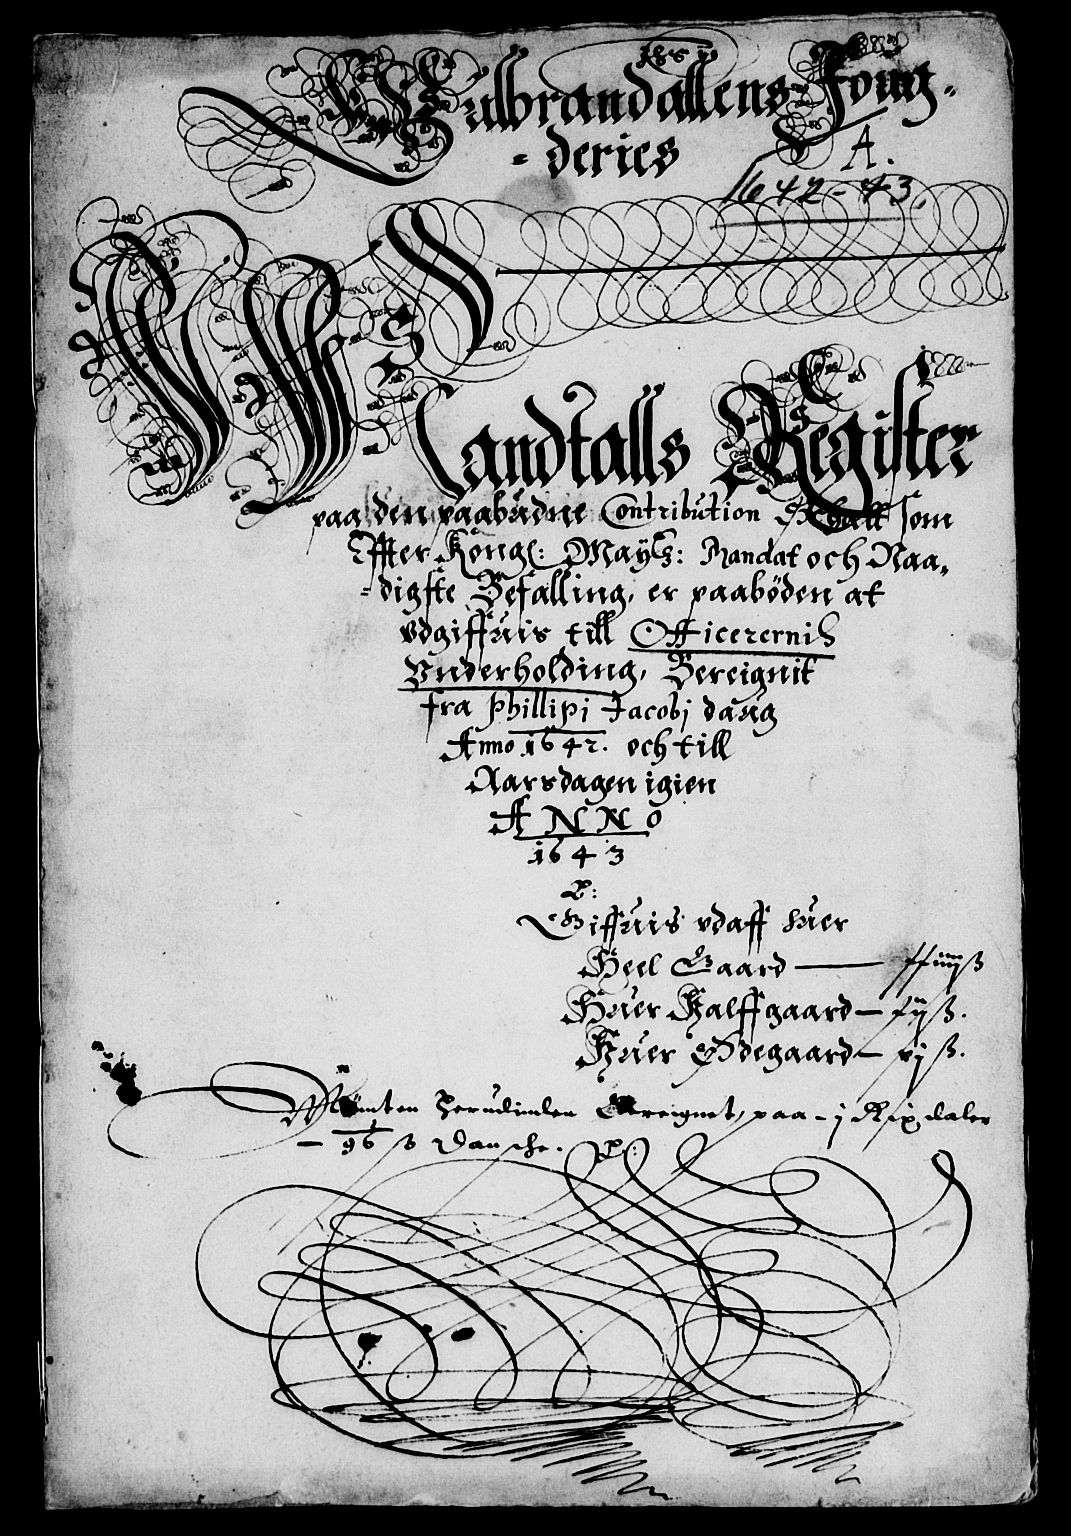 Gulbrandallens Foug-
= deries
A.
1642-43.
Mandtalls Register
paa den paabudne Contribution Schatt som
Effter Kongl: Mayts: Mandat och Naa-
= digste Befalling, er paaböden at
vdgiffuis till Officerernis
Vnderholding, Bereignit
fra Phillipi Jacobj daug
Anno 1642. och till
Aarsdagen igien
ANNO
1643
Giffuis vdaff huer
Heel Gaard
Huer Halffgaard
Huer Ödegaard — vj ß.
Mÿnten herudinden Bereignet, paa - j Rixdaler
— 96 ß Dansche.